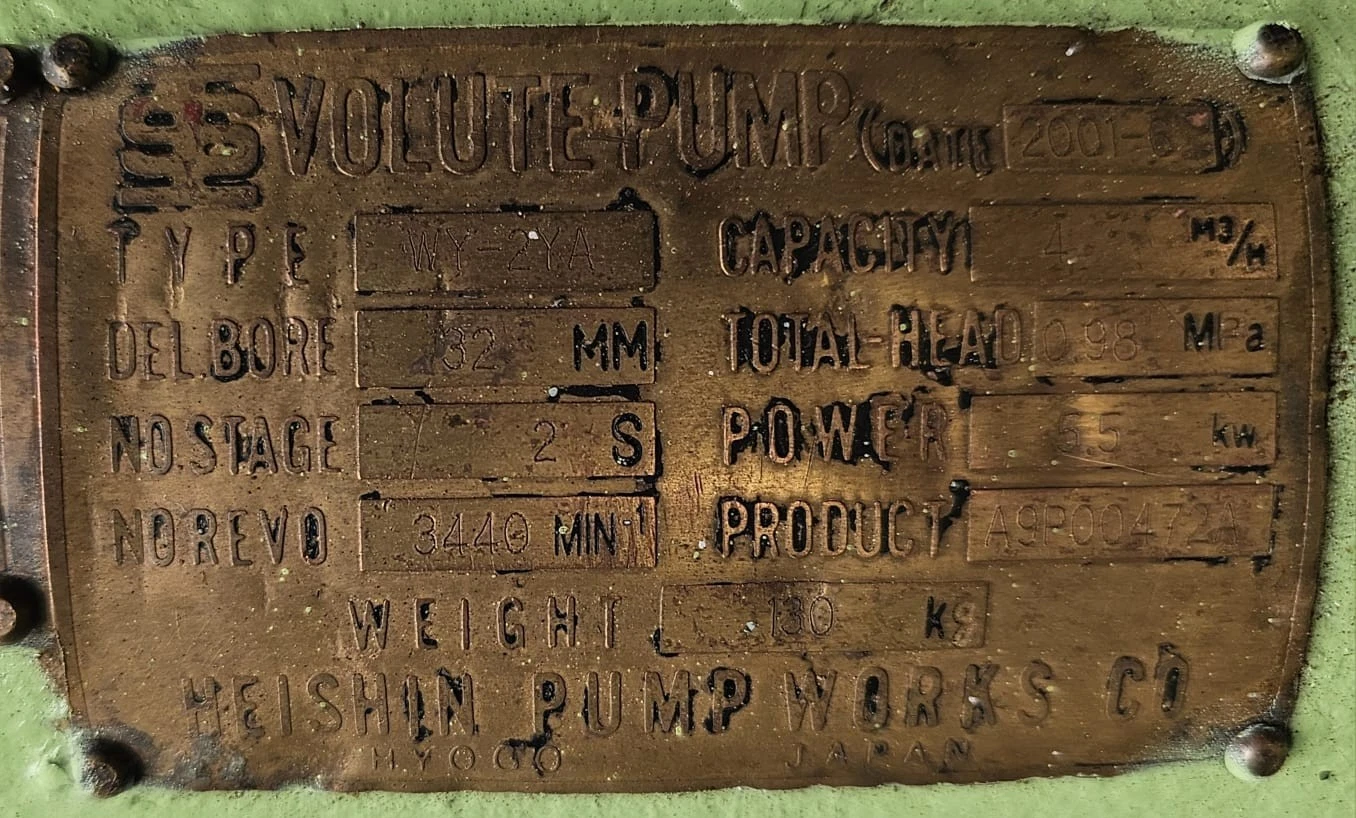 VOLUTE PUMP (DATE 2001-6)
TYPE WY-2YA CAPACITY 4 M3/H
DEL.BORE 32 MM TOTAL-HEAD 0.98 MPa
NO.STAGE 2 S POWER 5.5 kw
NO.REVO 3440 MIN⁻¹ PRODUCT A9P00472A
WEIGHT 130 Kg
HEISHIN PUMP WORKS CO
HYOGO JAPAN